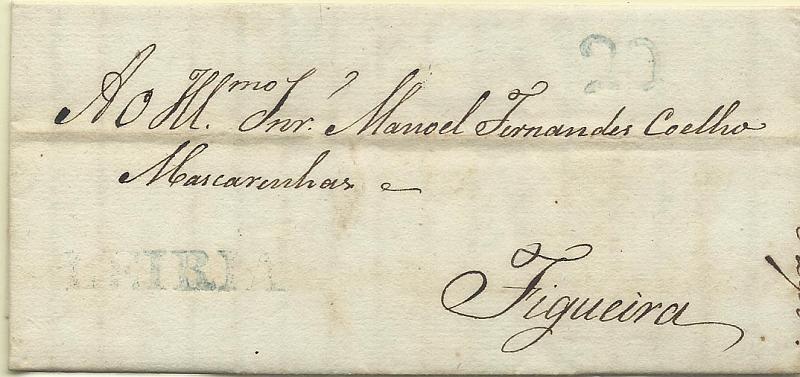 Ao Ill.mo Snr. Manoel Fernandes Coelho
Mascarenhas
LEIRIA
Figueira